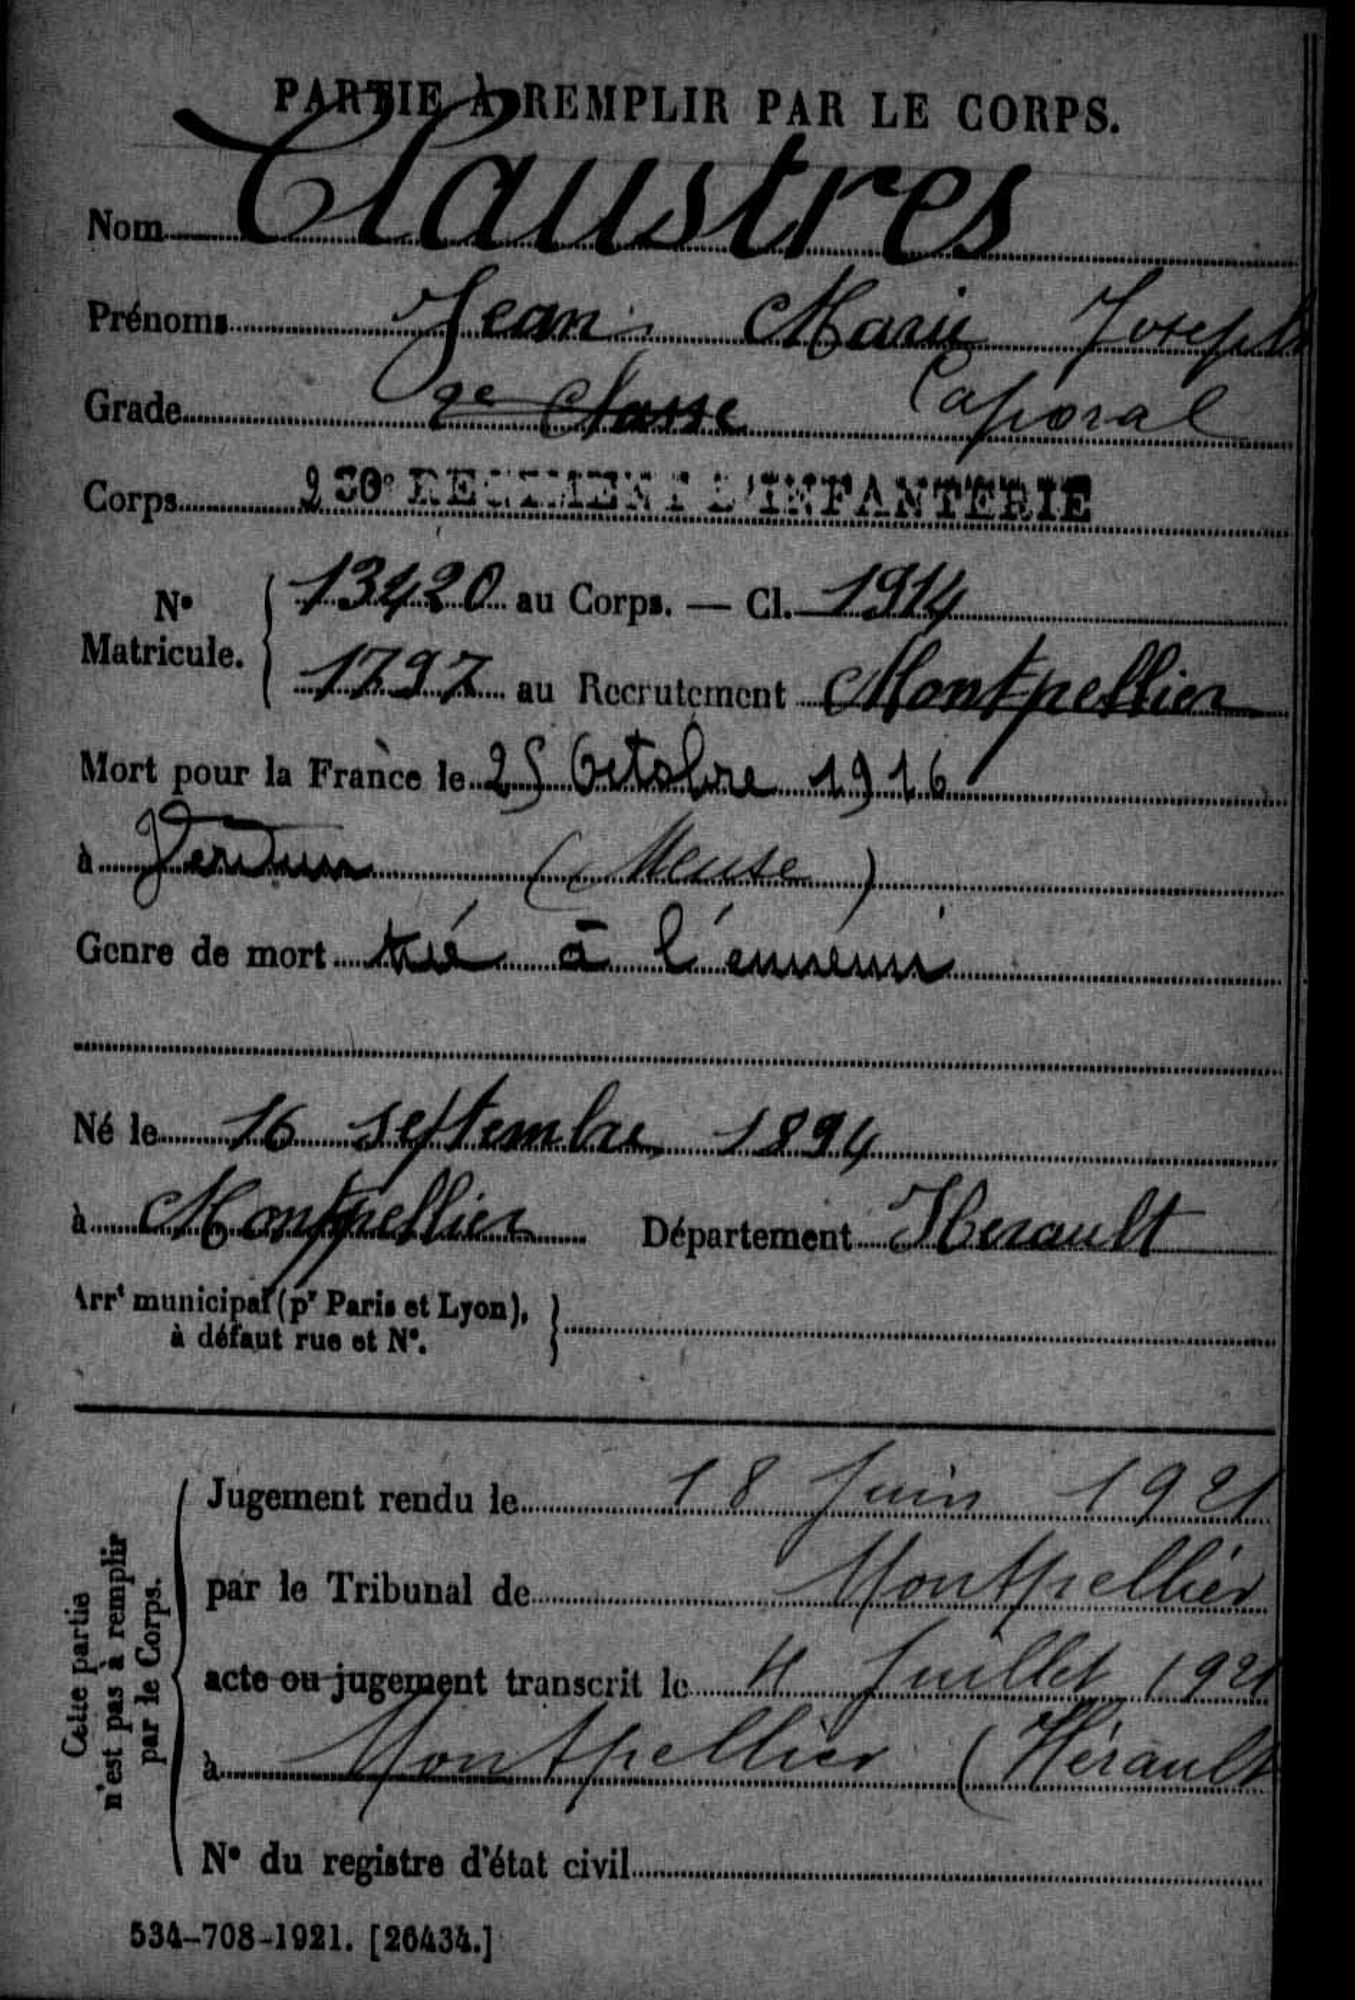 PARTIE À REMPLIR PAR LE CORPS.
Nom Claustres
Prénoms Jean Marie Joseph
Grade 2e Classe Caporal
Corps 230e REGIMENT D'INFANTERIE
No Matricule. 13420 au Corps. — Cl. 1914
1797 au Recrutement Montpellier
Mort pour la France le 25 Octobre 1916
à Verdun (Meuse)
Genre de mort tué à l'ennemi
Né le 16 septembre 1894
à Montpellier Département Herault
Arrt municipal (pr Paris et Lyon),
à défaut rue et No.
Cette partie n'est pas à remplir par le Corps.
Jugement rendu le 18 Juin 1921
par le Tribunal de Montpellier
acte ou jugement transcrit le 4 Juillet 1921
à Montpellier (Hérault
No du registre d'état civil
534-708-1921. [26434.]